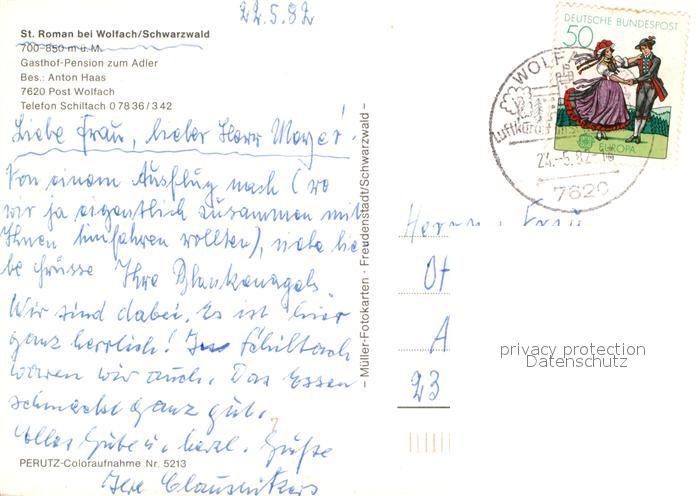 22.5.82
St. Roman bei Wolfach/Schwarzwald
700-850 m ü. M.
Gasthof-Pension zum Adler
Bes.: Anton Haas
7620 Post Wolfach
Telefon Schiltach 0 78 36 / 3 42
Liebe Frau, lieber Herr Mayer!
Von einem Ausflug nach (wo
wir ja eigentlich zusammen mit
Ihnen hinfahren wollten), viele lie
be Grüsse Ihre Blankenagels
Wir sind dabei. Es ist hier
ganz herrlich! In Schiltach
waren wir auch. Das Essen
schmeckt ganz gut.
Alles Gute u. herzl. Grüße
Ihre Clausnitzers
PERUTZ-Coloraufnahme Nr. 5213
– Müller-Fotokarten · Freudenstadt/Schwarzwald –
DEUTSCHE BUNDESPOST
50
EUROPA
WOLFA
Luftkurort
24.-5.82-
7620
Herrn u. Frau
Ot
A
23
privacy protection
Datenschutz